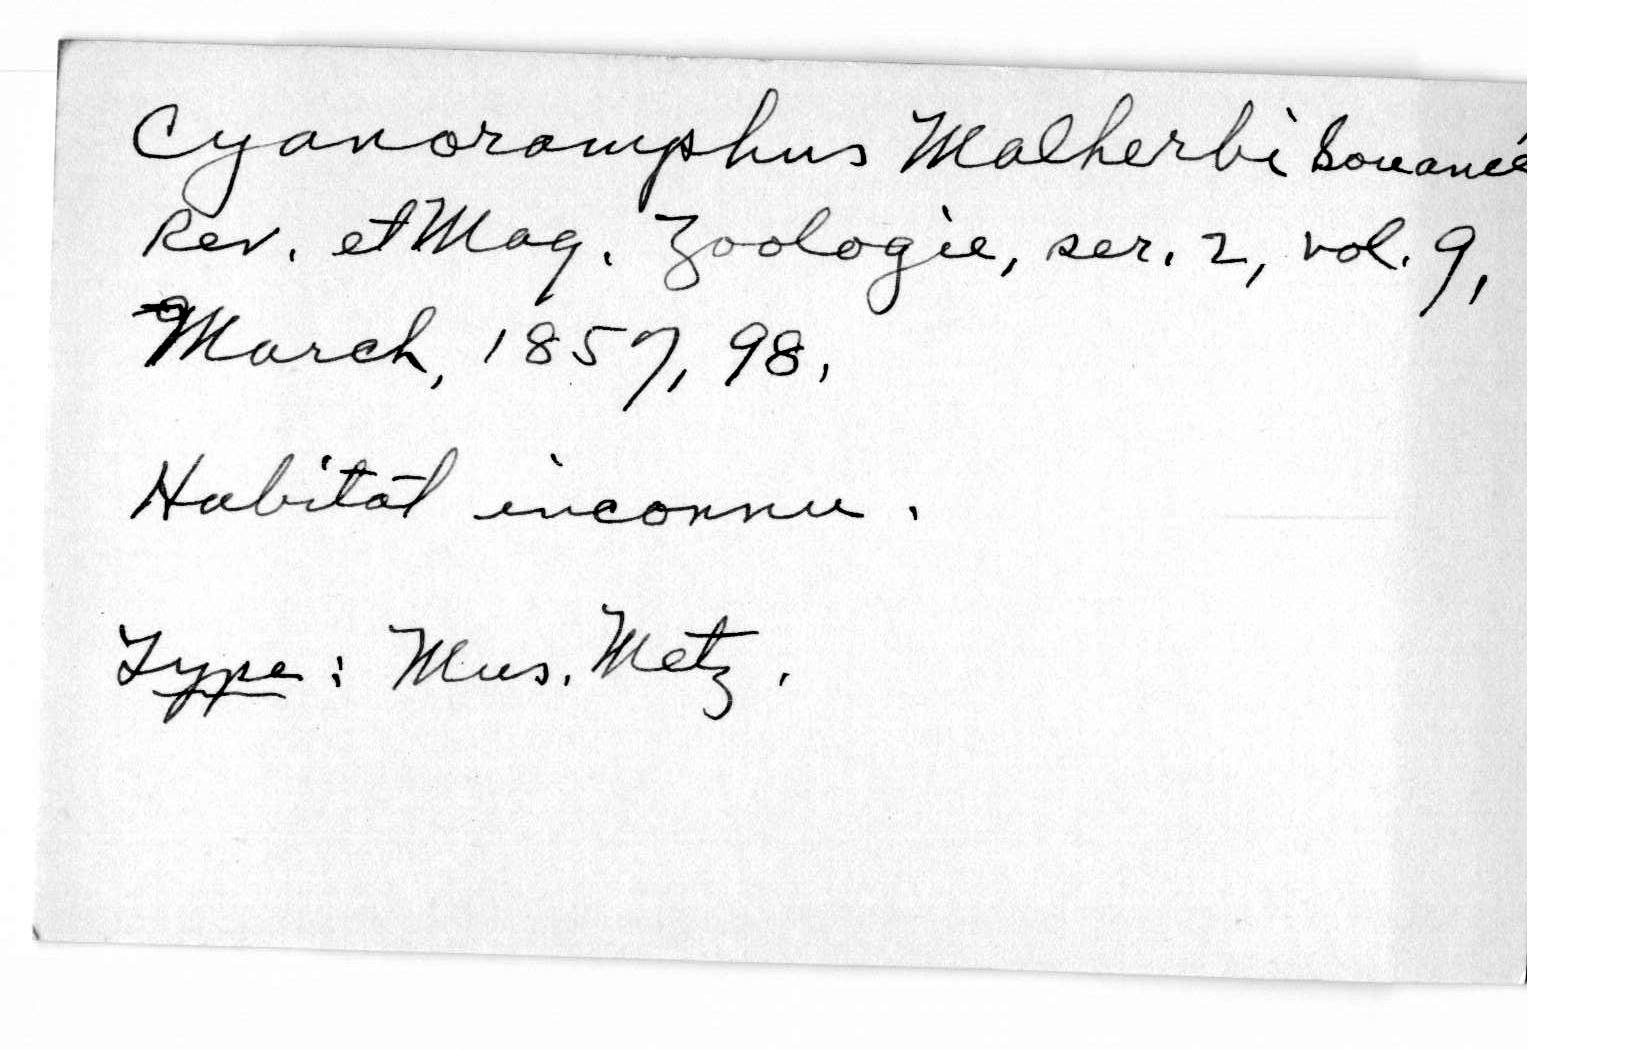 Cyanoramphus Malherbi Souancé
Rev. et Mag. Zoologie, ser. 2, vol. 9,
March, 1857, 98.
Habitat inconnu.
Type: Mus. Metz.